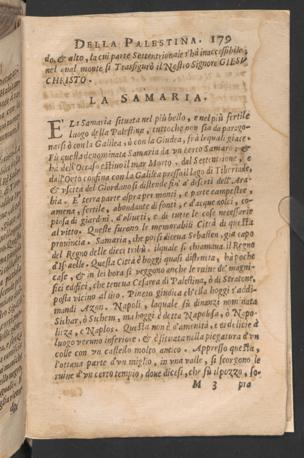 DELLA PALESTINA. 179
do, & alto, la cui parte Settentrionale è inaccessibile;
nel qual monte si Trasfigurò il Nostro Signore GIESV
CHRISTO.
LA SAMARIA.
E' La Samaria situata nel più bello, e nel più fertile
luogo della Palestina, tuttoche non sia da parago-
narsi ò con la Galilea, ò con la Giudea, frà lequali giace.
Fù questa denominata Samaria da vn certo Samaro, &
hà dell'Occaso estiuo il mar Morto, dal Settentrione, e
dall'Orto confina con la Galilea presso il lago di Tiberiade,
& vscita del Giordano si distende fin' à deserti dell'Ara-
bia. E' terra parte aspra per monti, e parte campestre,
amena, fertile, abondante di fonti, e d'acque dolci, co-
piosa di giardini, d'oliueti, e di tutte le cose necessarie
al vitto. Queste furono le memorabili Città di questa
prouincia. Samaria, che poi si diceua Sebasten, già capo
del Regno delle dieci tribù, il quale si chiamaua il Regno
d'Israelle. Questa Città è hoggi quasi distrutta, hà poche
case, & in lei hora si veggono anche le ruine de' magni-
fici edifici, che teneua Cesarea di Palestina, ò di Stratone,
posta vicino al lito. Pineto giudica ch'ella hoggi s'addi-
mandi Azon. Napoli, laquale fù dinanzi nominata
Sichar, ò Sichem, ma hoggi è detta Napolosa, ò Napo-
litza, e Naplos. Questa non è d'amenità, e di delitie à
luogo veruno inferiore, & è situata nella piegatura d'vn
colle con vn castello molto antico. Appresso questa,
l'ottaua parte d'vn miglio, in vna valle, si scorgono le
ruine d'vn certo tempio, doue dicesi, che fù il pozzo, so-
M 3 pra